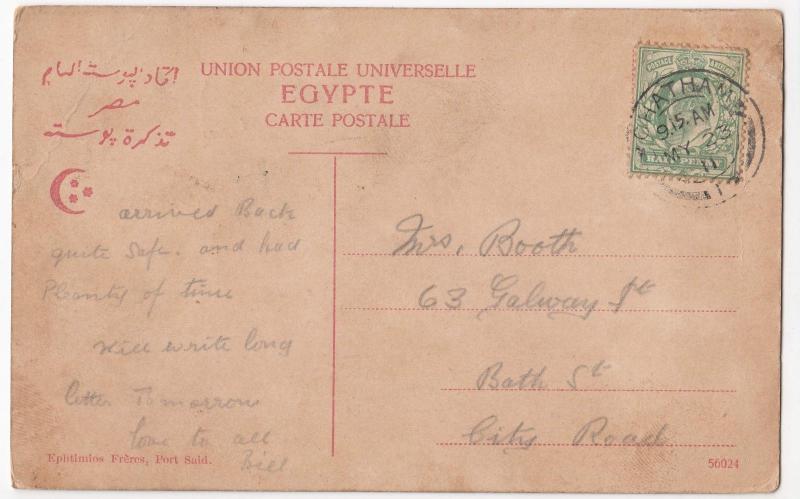 اتحاد پوسته العام
مصر
تذكرة پوسته
UNION POSTALE UNIVERSELLE
EGYPTE
CARTE POSTALE
POSTAGE & REVENUE
HALFPENNY
CHATHAM
9.15.AM
MY 23
11
arrived Back
quite safe. and had
Plenty of time
Will write long
letter Tomorrow
love to all
Bill
Mrs, Booth
63 Galway St
Bath St
City Road
Ephtimios Frères, Port Said.
56024